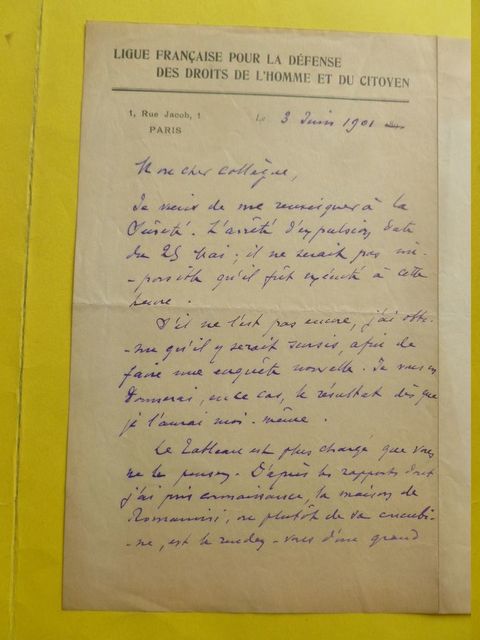 LIGUE FRANÇAISE POUR LA DÉFENSE
DES DROITS DE L'HOMME ET DU CITOYEN
1, Rue Jacob, 1
PARIS
Le 3 Juin 1901
Mon cher collègue,
Je viens de me renseigner à la
Sûreté. L'arrêté d'expulsion date
du 25 Mai ; il ne serait pas im-
-possible qu'il fût exécuté à cette
heure.
S'il ne l'est pas encore, j'ai obte-
-nu qu'il y serait sursis, afin de
faire une enquête nouvelle. Je vous en
donnerai, en ce cas, le résultat dès que
je l'aurai moi-même.
Le tableau est plus chargé que vous
ne le pensez. D'après les rapports dont
j'ai pris connaissance, la maison de
ou plutôt de sa concubi-
-ne, est le rendez-vous d'un grand